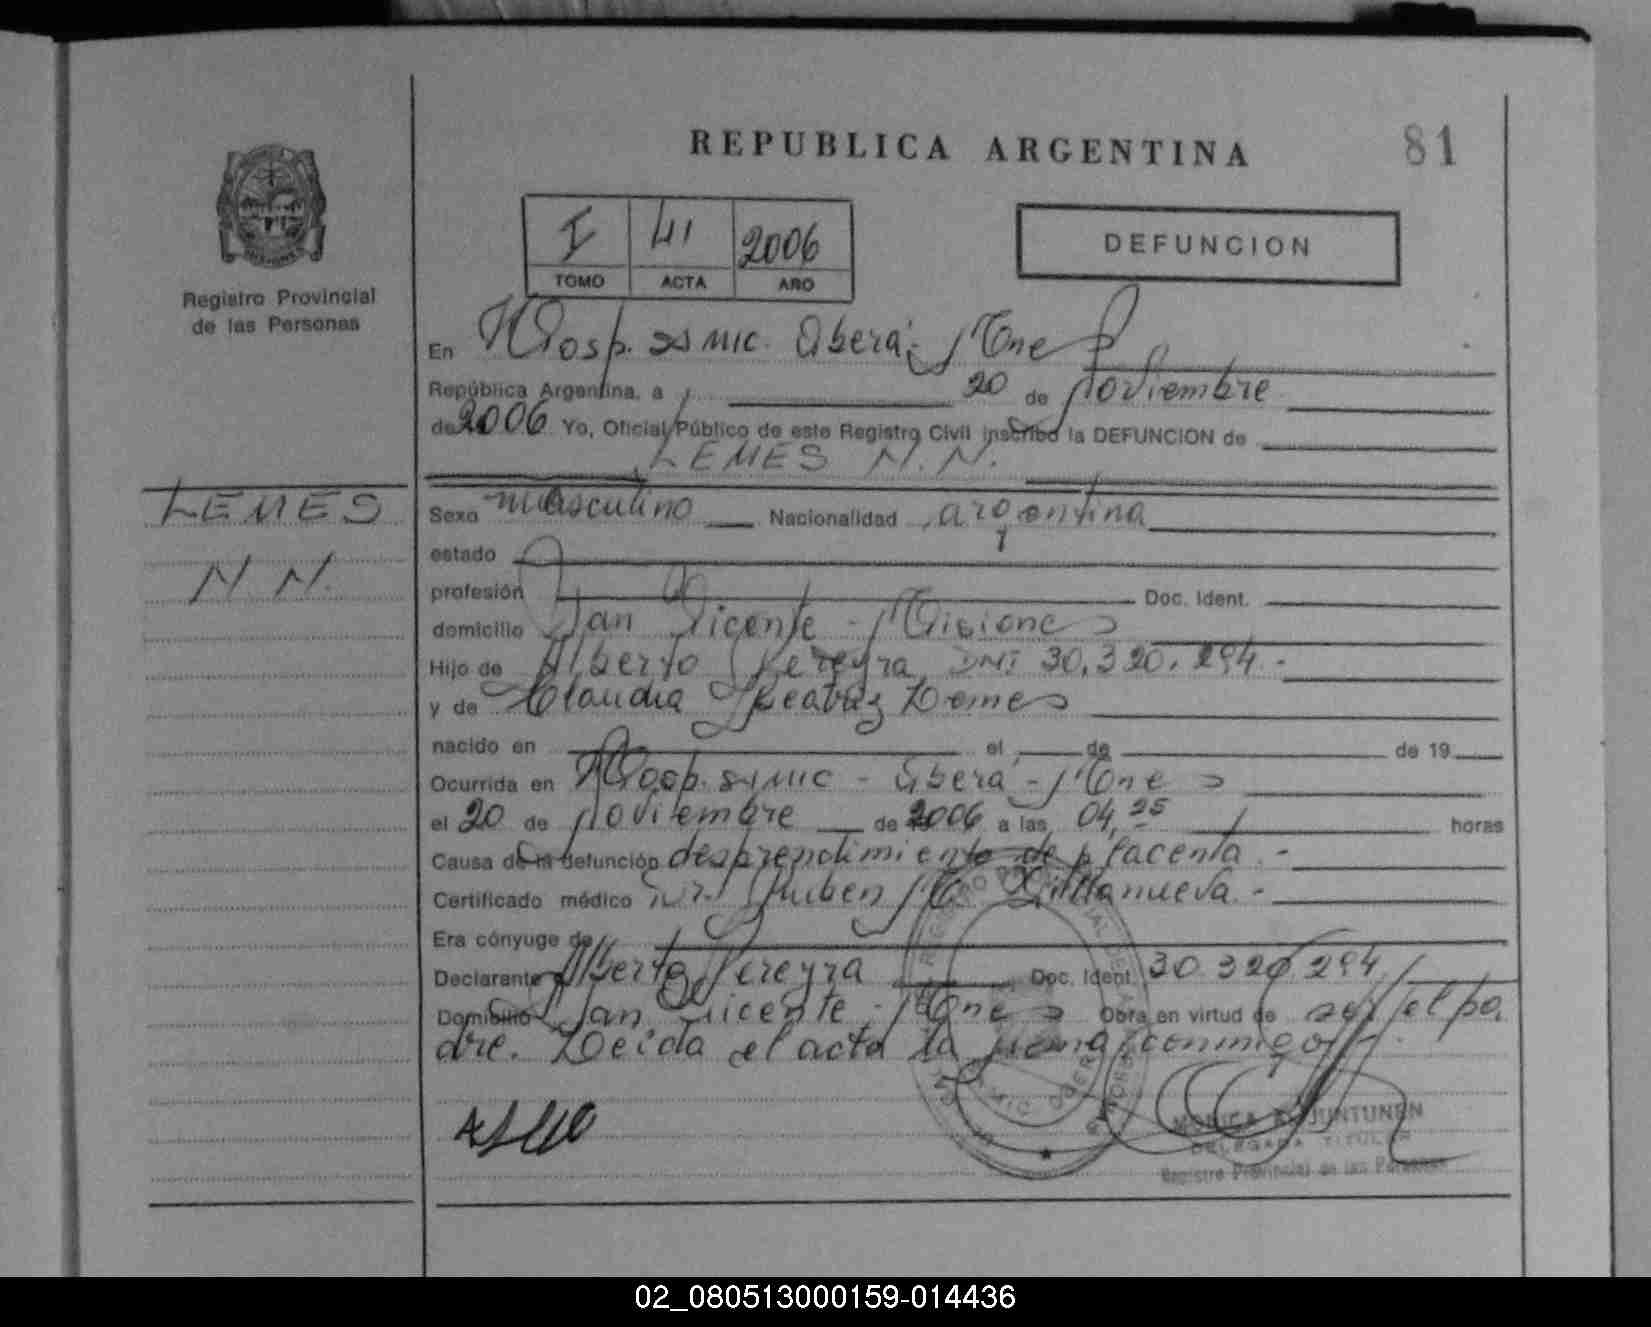 REPUBLICA ARGENTINA
81
I 41 2006
TOMO ACTA AÑO
DEFUNCION
Registro Provincial
de las Personas
En Hosp. SAMIC. Oberá; Mnes
República Argentina, a 20 de noviembre
de 2006 Yo, Oficial Público de este Registro Civil inscribo la DEFUNCION de
LEMES N.N.
LEMES
N.N.
Sexo masculino Nacionalidad argentina
estado
profesión Doc. Ident.
domicilio San Vicente - Misiones
Hijo de Alberto Pereyra DNI 30.320.294.-
y de Claudia Beatriz Lemes
nacido en el de de 19
Ocurrida en Hosp. SAMIC - Oberá - Mnes
el 20 de noviembre de 2006 a las 04,25 horas
Causa de la defunción desprendimiento de placenta.-
Certificado médico Dr. Ruben M. Villanueva.-
Era cónyuge de
Declarante Alberto Pereyra Doc. Ident. 30.320.294
Domicilio San Vicente - Mnes Obra en virtud de ser el pa
dre. Leída el acta la firma conmigo.
JUNTUNEN
DELEGADA TITULAR
Registro Provincial de las Personas
02_080513000159-014436